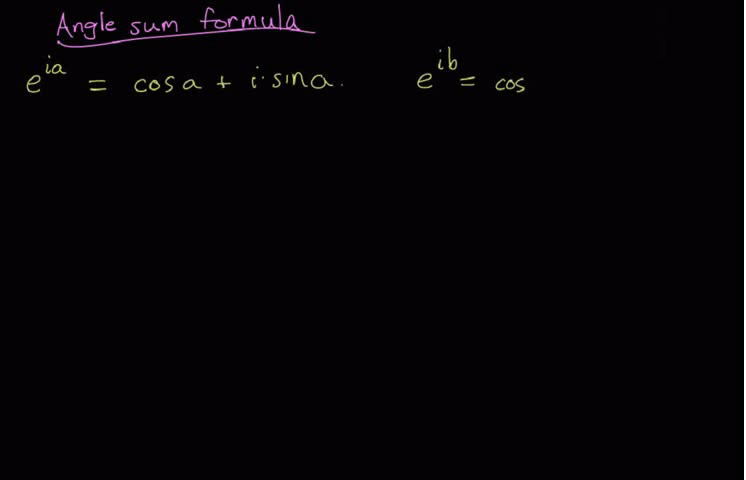 Angle sum formula
e^{ia} = cos a + i·sin a. e^{ib} = cos